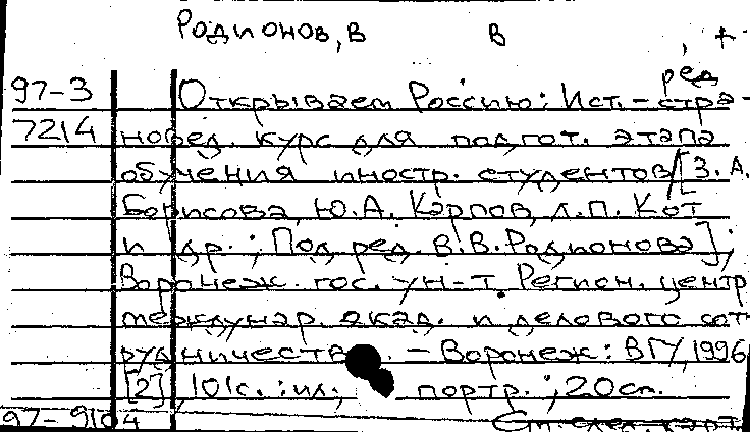 Родионов, В В , +
ред
97-3 Открываем Россию: Ист.-стра-
7214 новед. курс для подгот. этапа
обучения иностр. студентов/[З.А.
Борисова, Ю.А. Карпов, Л.П. Кот
и др.; Под ред. В.В. Родионова];
Воронеж. гос. ун-т. Регион. центр
междунар. акад. и делового сот
рудничеств . - Воронеж: ВГУ, 1996
[2], 101с.: ил., портр.; 20см.
97-9104 См. след. карт.